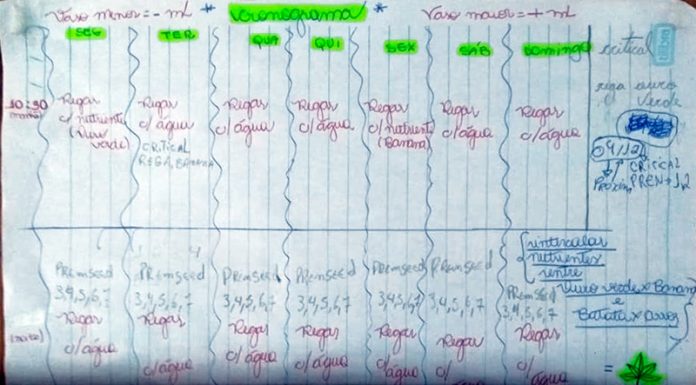 Vaso menor = - mL * Cronograma * Vaso maior = + mL
SEG TER QUA QUI SEX SÁB DOMINGO
critical
rega ouro
verde
10:30
(manhã)
Regar
c/ nutriente
(Ouro
verde)
Regar
c/ água
CRITICAL
REGA, BANANA
Regar
c/ água
Regar
c/ água
Regar
c/ nutriente
(Banana)
Regar
c/ água
Regar
c/ água
04/12
CRITICAL
PREN → 1,2
PREmSEEd
3,4,5,6,7
Regar
c/ água
PREmSEEd
3,4,5,6,7
Regar
c/ água
PREmSEEd
3,4,5,6,7
Regar
c/ água
PREmSEEd
3,4,5,6,7
Regar
c/ água
PREmSEEd
3,4,5,6,7
Regar
c/ água
PREmSEEd
3,4,5,6,7
Regar
c/ água
PREmSEEd
3,4,5,6,7
Regar
c/ água
intercalar
nutrientes
entre
Ouro verde x Banana
e
Batata x Arroz
=